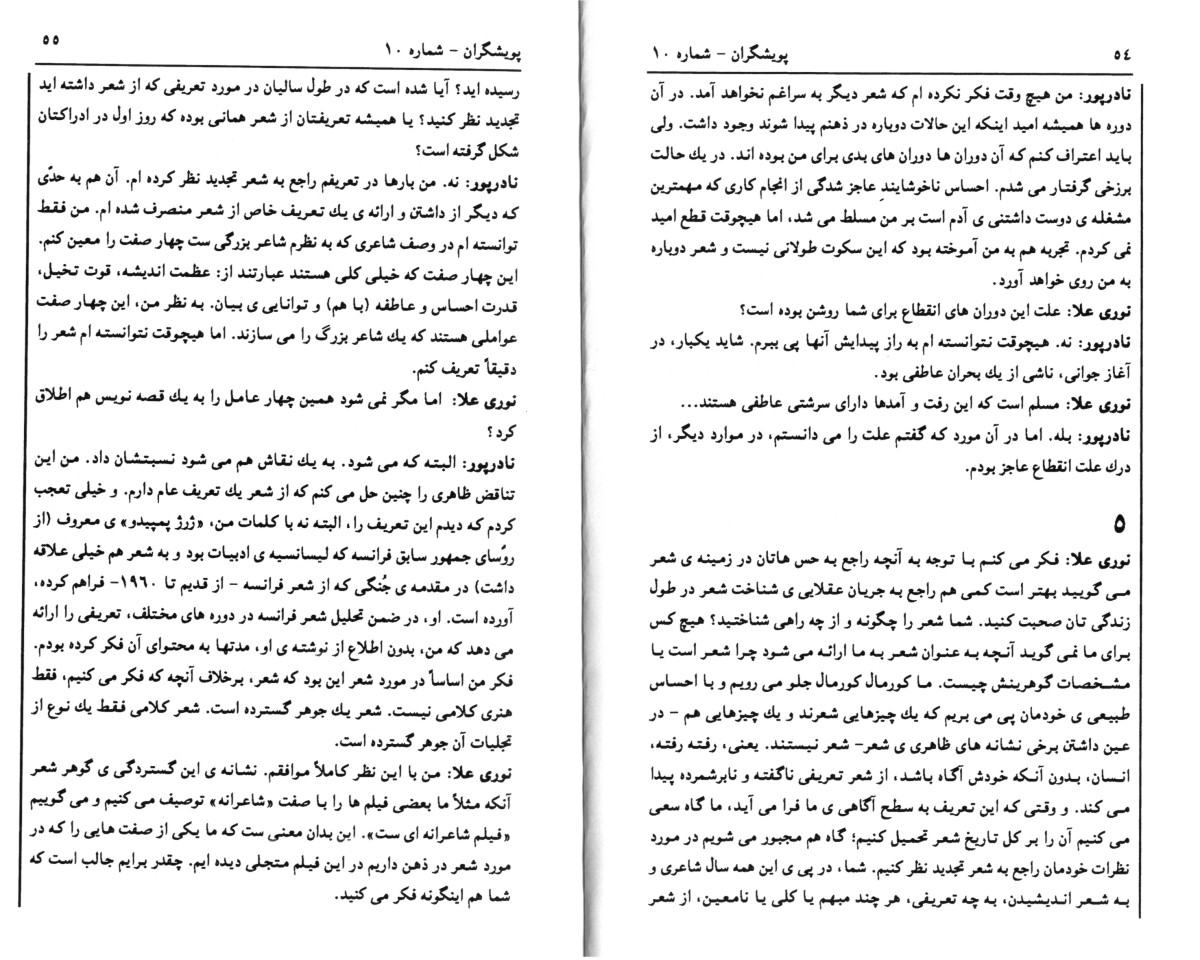 ٥٤
پویشگران – شماره ۱۰
نادرپور: من هیچ وقت فکر نکرده ام که شعر دیگر به سراغم نخواهد آمد. در آن
دوره ها همیشه امید اینکه این حالات دوباره در ذهنم پیدا شوند وجود داشت. ولی
باید اعتراف کنم که آن دوران ها دوران های بدی برای من بوده اند. در یك حالت
برزخی گرفتار می شدم. احساس ناخوشایند عاجز شدگی از انجام کاری که مهمترین
مشغله ی دوست داشتنی ی آدم است بر من مسلط می شد، اما هیچوقت قطع امید
نمی کردم. تجربه هم به من آموخته بود که این سکوت طولانی نیست و شعر دوباره
به من روی خواهد آورد.
نوری علا: علت این دوران های انقطاع برای شما روشن بوده است؟
نادرپور: نه. هیچوقت نتوانسته ام به راز پیدایش آنها پی ببرم. شاید یکبار، در
آغاز جوانی، ناشی از یك بحران عاطفی بود.
نوری علا: مسلم است که این رفت و آمدها دارای سرشتی عاطفی هستند...
نادرپور: بله. اما در آن مورد که گفتم علت را می دانستم، در موارد دیگر، از
درك علت انقطاع عاجز بودم.
٥
نوری علا: فکر می کنم با توجه به آنچه راجع به حس هاتان در زمینه ی شعر
می گویید بهتر است کمی هم راجع به جریان عقلایی ی شناخت شعر در طول
زندگی تان صحبت کنید. شما شعر را چگونه و از چه راهی شناختید؟ هیچ کس
برای ما نمی گوید آنچه به عنوان شعر به ما ارائه می شود چرا شعر است یا
مشخصات گوهرینش چیست. ما کورمال کورمال جلو می رویم و با احساس
طبیعی ی خودمان پی می بریم که یك چیزهایی شعرند و یك چیزهایی هم – در
عین داشتن برخی نشانه های ظاهری ی شعر– شعر نیستند. یعنی، رفته رفته،
انسان، بدون آنکه خودش آگاه باشد، از شعر تعریفی ناگفته و نابرشمرده پیدا
می کند. و وقتی که این تعریف به سطح آگاهی ی ما فرا می آید، ما گاه سعی
می کنیم آن را بر کل تاریخ شعر تحمیل کنیم؛ گاه هم مجبور می شویم در مورد
نظرات خودمان راجع به شعر تجدید نظر کنیم. شما، در پی ی این همه سال شاعری و
به شعر اندیشیدن، به چه تعریفی، هر چند مبهم یا کلی یا نامعین، از شعر
پویشگران – شماره ۱۰
٥٥
رسیده اید؟ آیا شده است که در طول سالیان در مورد تعریفی که از شعر داشته اید
تجدید نظر کنید؟ یا همیشه تعریفتان از شعر همانی بوده که روز اول در ادراکتان
شکل گرفته است؟
نادرپور: نه. من بارها در تعریفم راجع به شعر تجدید نظر کرده ام. آن هم به حدّی
که دیگر از داشتن و ارائه ی یك تعریف خاص از شعر منصرف شده ام. من فقط
توانسته ام در وصف شاعری که به نظرم شاعر بزرگی ست چهار صفت را معین کنم.
این چهار صفت که خیلی کلی هستند عبارتند از: عظمت اندیشه، قوت تخیل،
قدرت احساس و عاطفه (با هم) و توانایی ی بیان. به نظر من، این چهار صفت
عواملی هستند که یك شاعر بزرگ را می سازند. اما هیچوقت نتوانسته ام شعر را
دقیقاً تعریف کنم.
نوری علا: اما مگر نمی شود همین چهار عامل را به یك قصه نویس هم اطلاق
کرد؟
نادرپور: البته که می شود. به یك نقاش هم می شود نسبتشان داد. من این
تناقض ظاهری را چنین حل می کنم که از شعر یك تعریف عام دارم. و خیلی تعجب
کردم که دیدم این تعریف را، البته نه با کلمات من، «ژرژ پمپیدو» ی معروف (از
روٴسای جمهور سابق فرانسه که لیسانسیه ی ادبیات بود و به شعر هم خیلی علاقه
داشت) در مقدمه ی جُنگی که از شعر فرانسه – از قدیم تا ۱۹٦۰– فراهم کرده،
آورده است. او، در ضمن تحلیل شعر فرانسه در دوره های مختلف، تعریفی را ارائه
می دهد که من، بدون اطلاع از نوشته ی او، مدتها به محتوای آن فکر کرده بودم.
فکر من اساساً در مورد شعر این بود که شعر، برخلاف آنچه که فکر می کنیم، فقط
هنری کلامی نیست. شعر یك جوهر گسترده است. شعر کلامی فقط یك نوع از
تجلیات آن جوهر گسترده است.
نوری علا: من با این نظر کاملاً موافقم. نشانه ی این گستردگی ی گوهر شعر
آنکه مثلاً ما بعضی فیلم ها را با صفت «شاعرانه» توصیف می کنیم و می گوییم
«فیلم شاعرانه ای ست». این بدان معنی ست که ما یکی از صفت هایی را که در
مورد شعر در ذهن داریم در این فیلم متجلی دیده ایم. چقدر برایم جالب است که
شما هم اینگونه فکر می کنید.